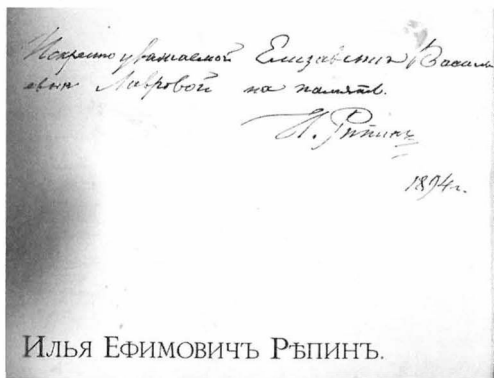 Искренно уважаемой Елизаветѣ Василь
евнѣ Лавровой на память.
И. Рѣпинъ
1894 г.
Илья Ефимовичъ Рѣпинъ.